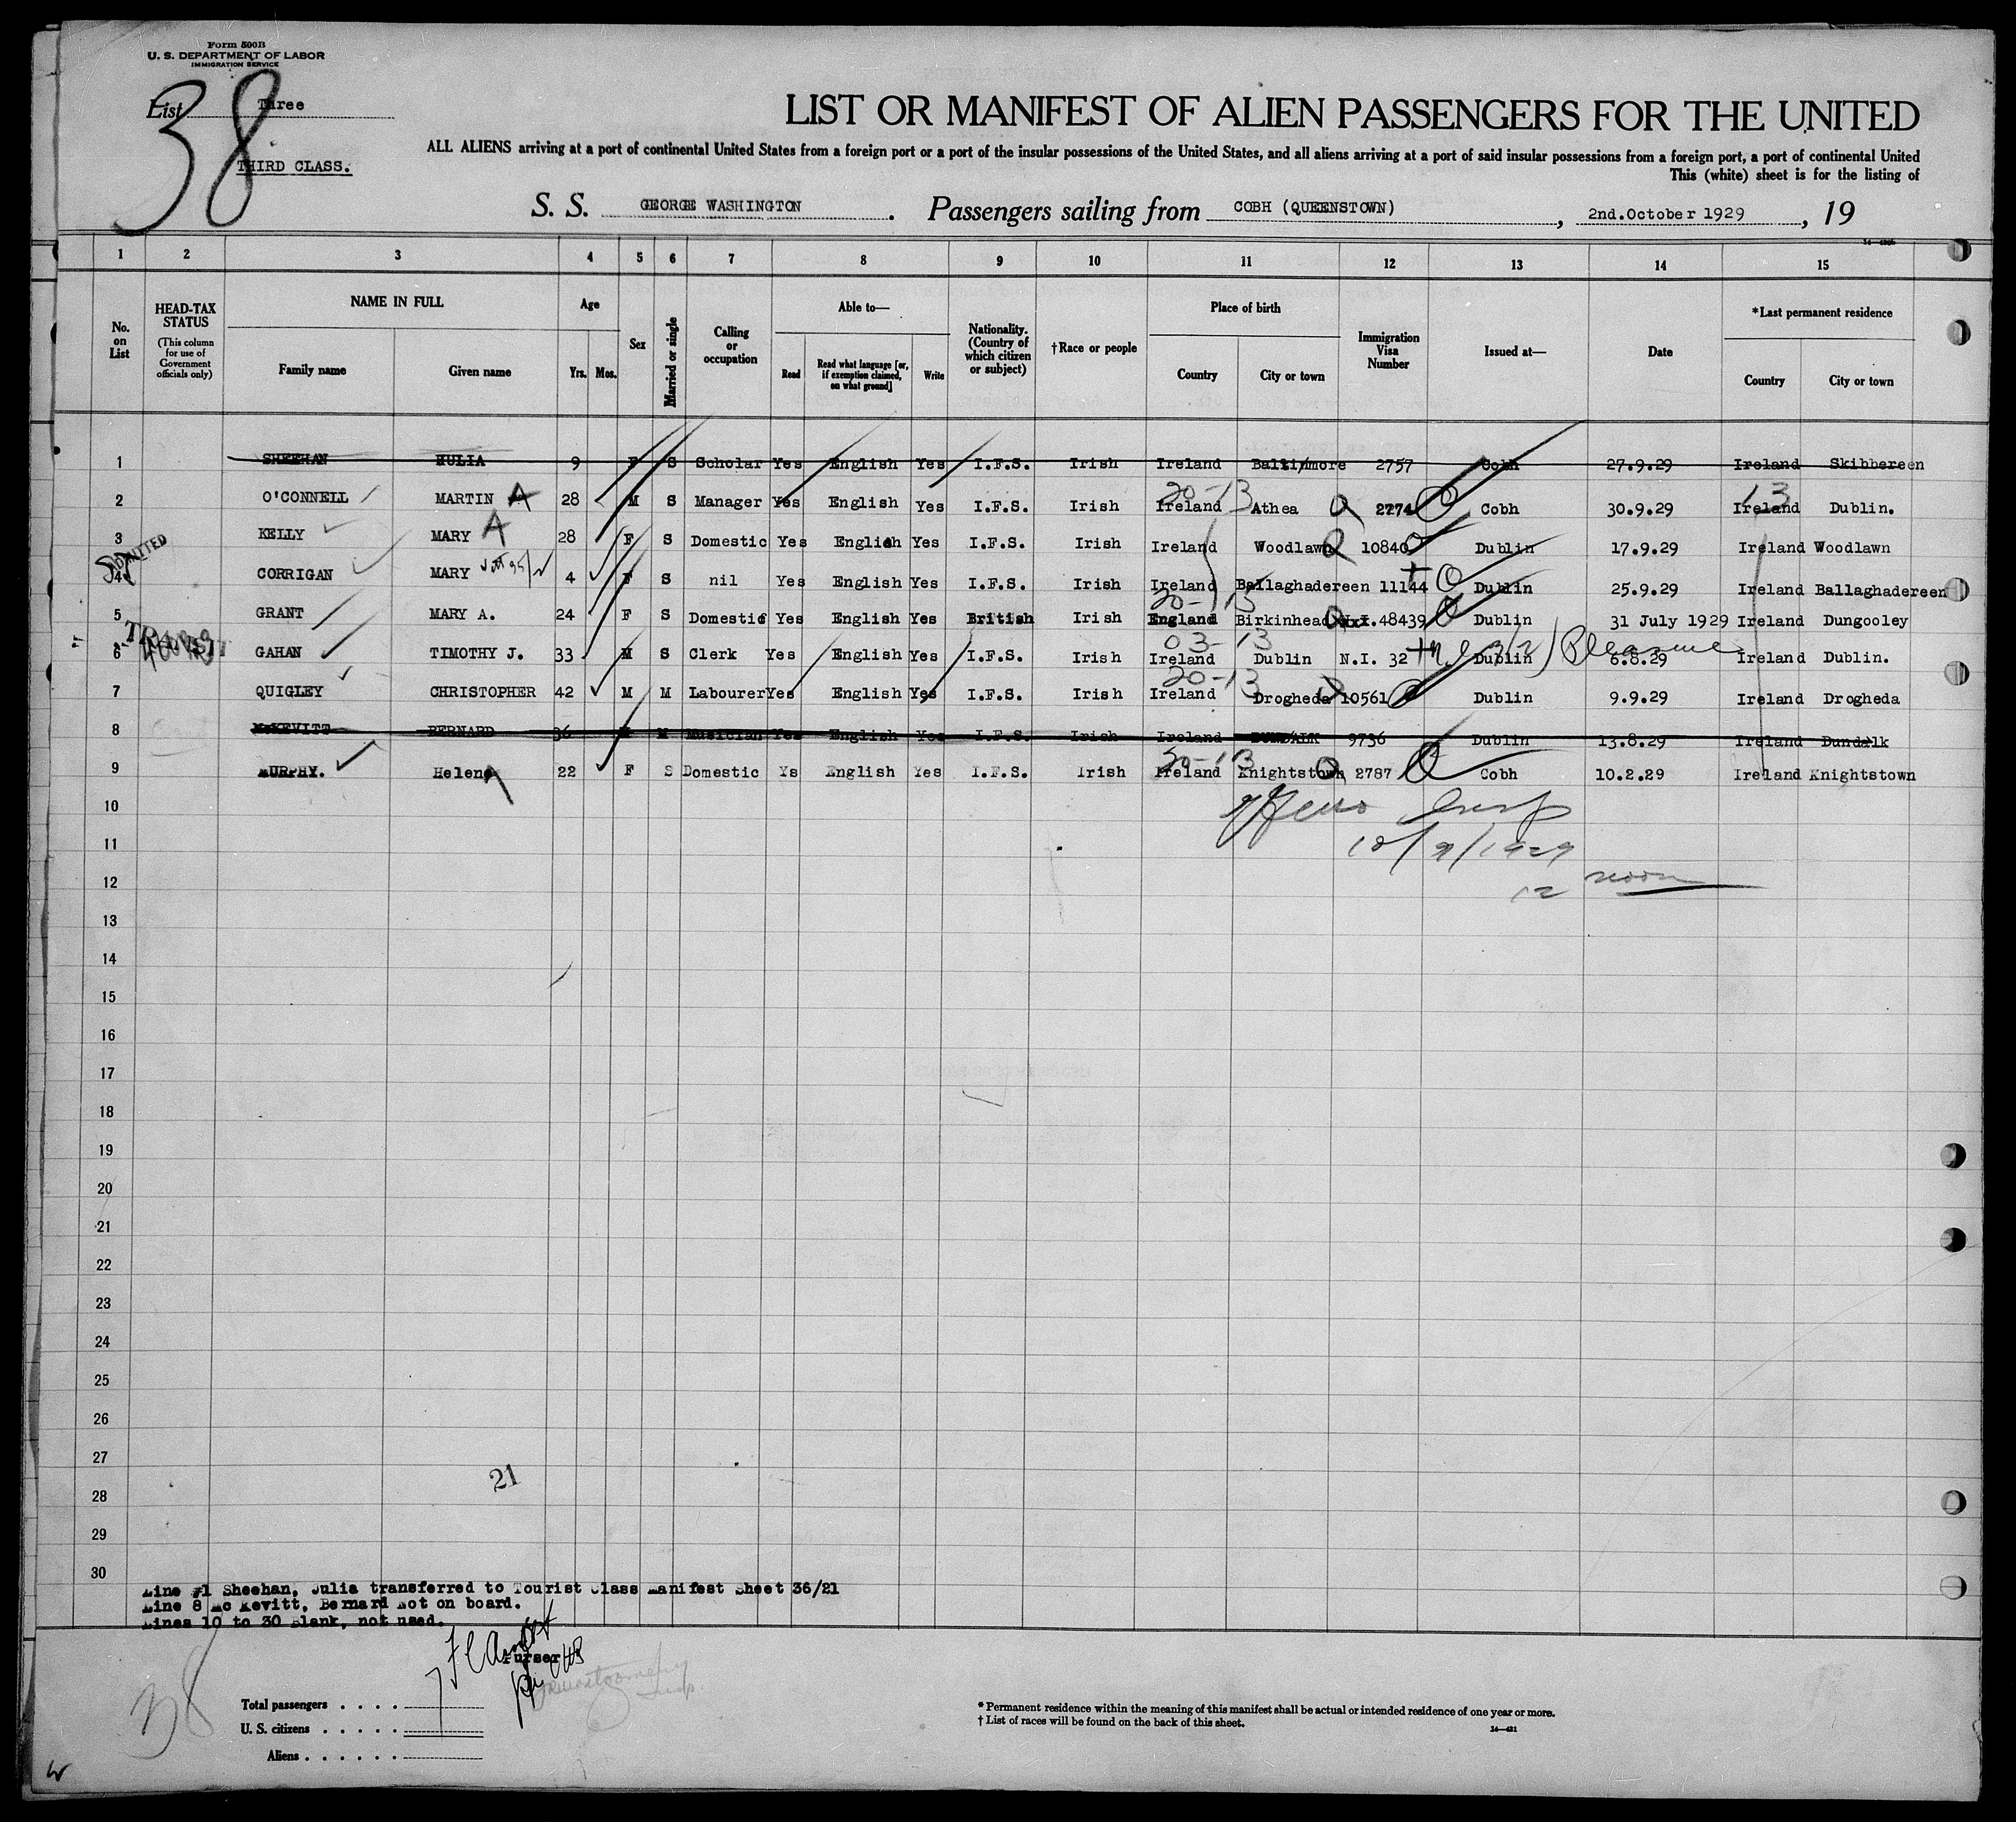 Form 500B
U. S. DEPARTMENT OF LABOR
IMMIGRATION SERVICE
List Three
38
THIRD CLASS.
LIST OR MANIFEST OF ALIEN PASSENGERS FOR THE UNITED
ALL ALIENS arriving at a port of continental United States from a foreign port or a port of the insular possessions of the United States, and all aliens arriving at a port of said insular possessions from a foreign port, a port of continental United
This (white) sheet is for the listing of
S. S. GEORGE WASHINGTON . Passengers sailing from COBH (QUEENSTOWN) , 2nd.October 1929 , 19
1 2 3 4 5 6 7 8 9 10 11 12 13 14 15
No. on List
HEAD-TAX STATUS
(This column for use of Government officials only)
NAME IN FULL
Family name Given name
Age
Yrs. Mos.
Sex
Married or single
Calling or occupation
Able to—
Read
Read what language [or, if exemption claimed, on what ground]
Write
Nationality. (Country of which citizen or subject)
†Race or people
Place of birth
Country City or town
Immigration Visa Number
Issued at—
Date
*Last permanent residence
Country City or town
1 SHEEHAN HULIA 9 F S Scholar Yes English Yes I.F.S. Irish Ireland Baltimmore 2757 Cobh 27.9.29 Ireland Skibbereen
20-13 13
2 O'CONNELL MARTIN A 28 M S Manager Yes English Yes I.F.S. Irish Ireland Athea 2274 Cobh 30.9.29 Ireland Dublin.
3 KELLY MARY A 28 F S Domestic Yes English Yes I.F.S. Irish Ireland Woodlawn 10840 Dublin 17.9.29 Ireland Woodlawn
ADMITTED
4 CORRIGAN MARY 4 F S nil Yes English Yes I.F.S. Irish Ireland Ballaghadereen 11144 Dublin 25.9.29 Ireland Ballaghadereen
20-13
5 GRANT MARY A. 24 F S Domestic Yes English Yes British Irish England Birkinhead 48439 Dublin 31 July 1929 Ireland Dungooley
03-13
6 GAHAN TIMOTHY J. 33 M S Clerk Yes English Yes I.F.S. Irish Ireland Dublin N.I. 32 Dublin Pleasure 6.8.29 Ireland Dublin.
20-13
7 QUIGLEY CHRISTOPHER 42 M M Labourer Yes English Yes I.F.S. Irish Ireland Drogheda 10561 Dublin 9.9.29 Ireland Drogheda
8 McKEVITT BERNARD 36 M M Musician Yes English Yes I.F.S. Irish Ireland DUNDALK 9736 Dublin 13.8.29 Ireland Dundalk
20-13
9 MURPHY. Helena 22 F S Domestic Ys English Yes I.F.S. Irish Ireland Knightstown 2787 Cobh 10.2.29 Ireland Knightstown
10
11
12 12 noon
13
14
15
16
17
18
19
20
21
22
23
24
25
26
27
21
28
29
30
Line #1 Sheehan, Julia transferred to Tourist Class Manifest Sheet 36/21
Line 8 Mc Kevitt, Bernard not on board.
Lines 10 to 30 Blank, not used.
Purser
38
Total passengers . . . .
U. S. citizens . . . . .
Aliens . . . . . .
* Permanent residence within the meaning of this manifest shall be actual or intended residence of one year or more.
† List of races will be found on the back of this sheet.
14—421